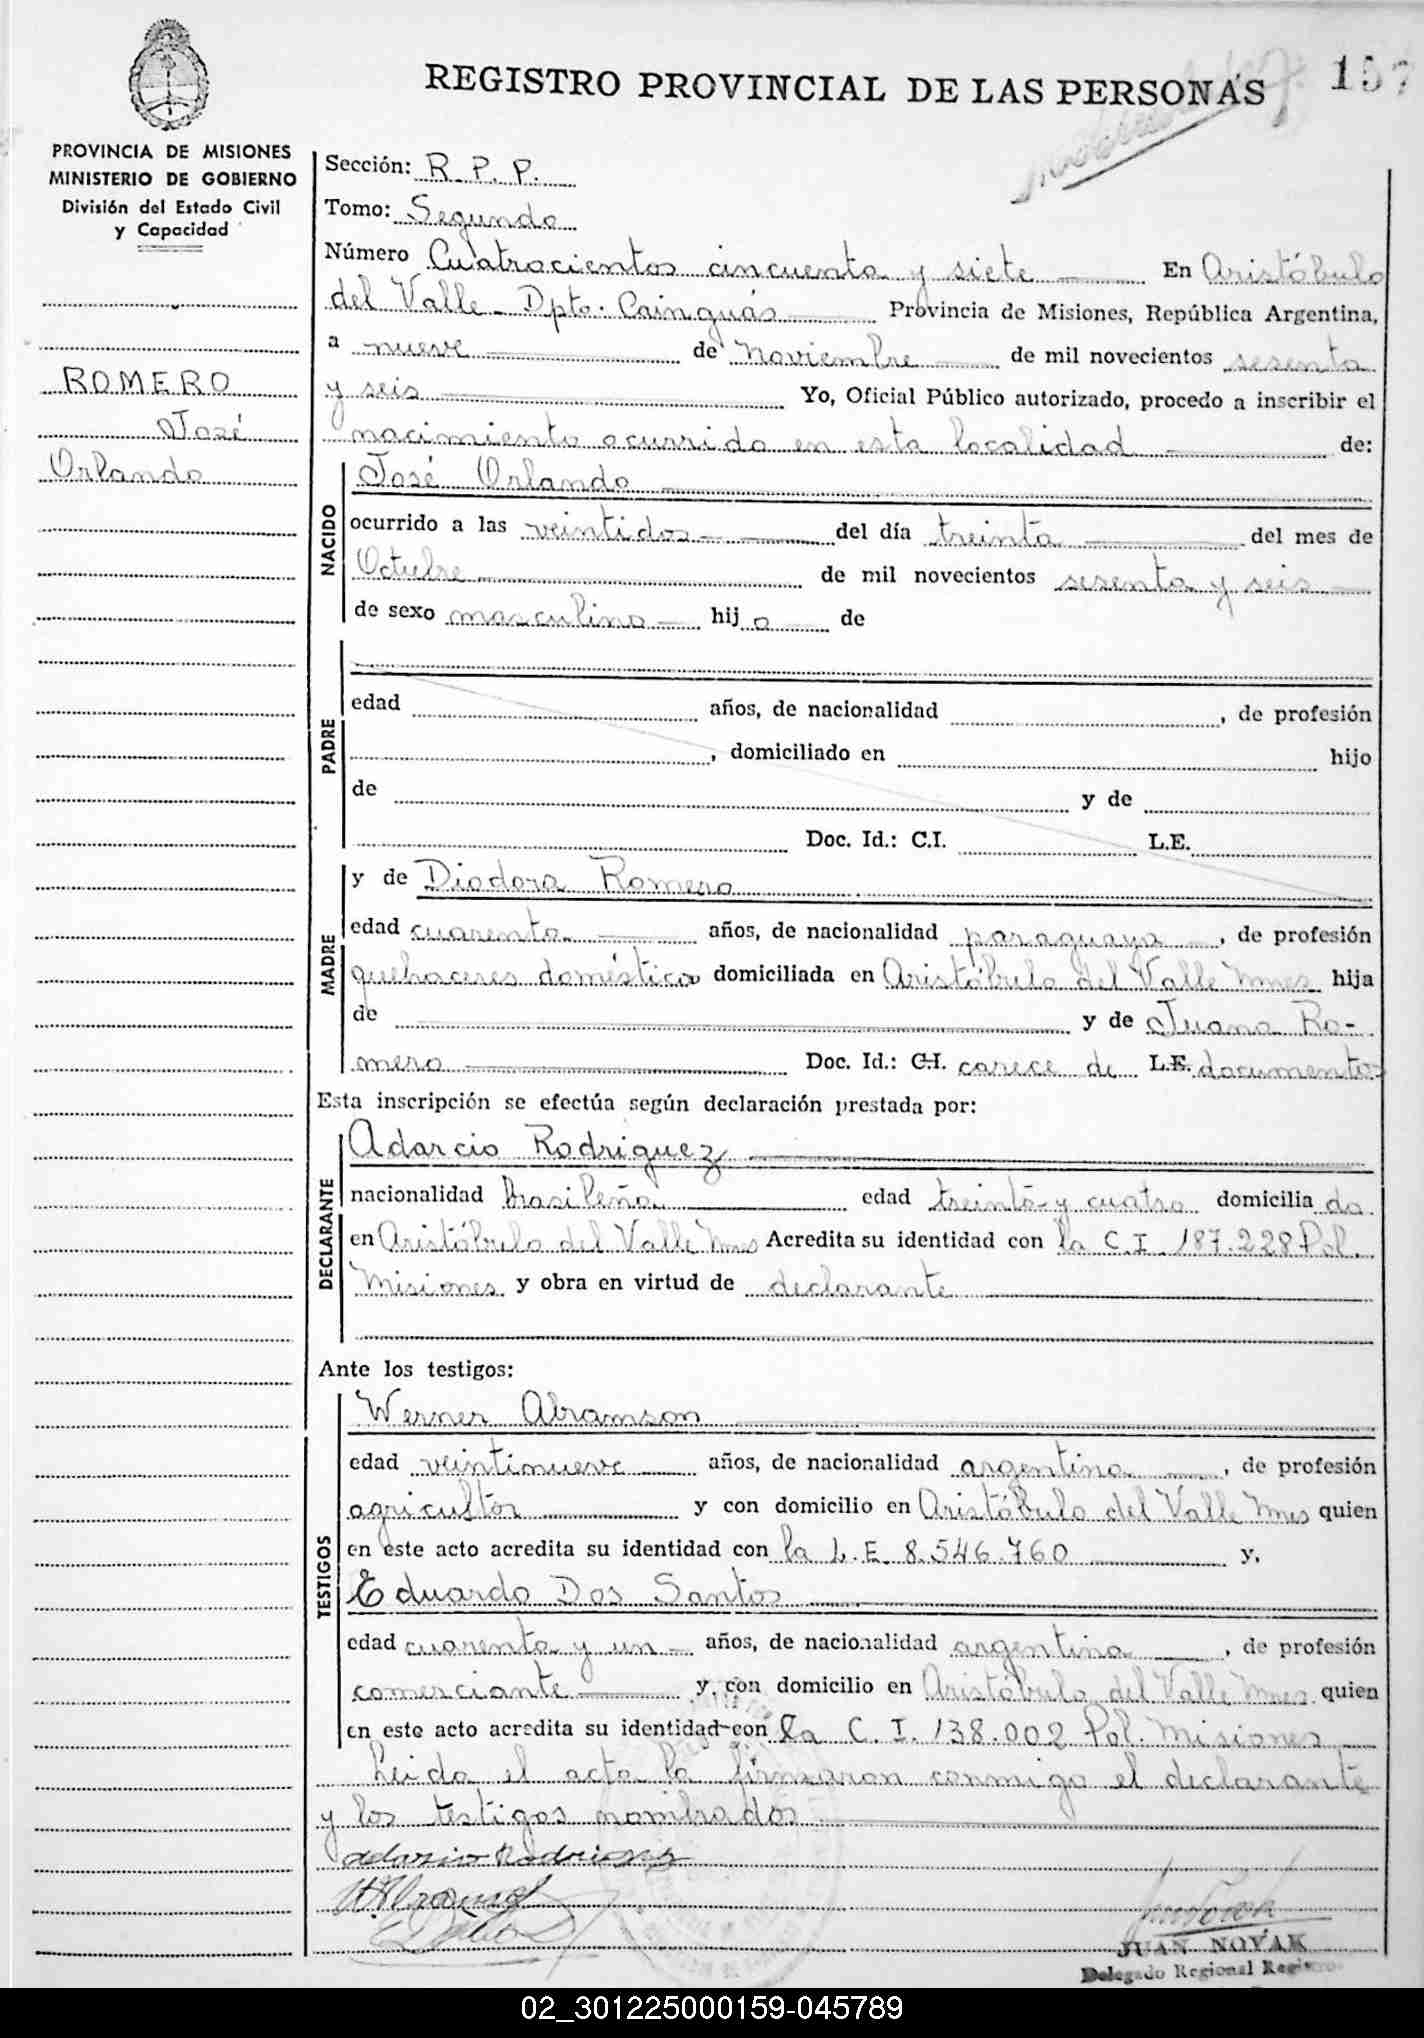 REGISTRO PROVINCIAL DE LAS PERSONAS
157
PROVINCIA DE MISIONES
MINISTERIO DE GOBIERNO
División del Estado Civil
y Capacidad
ROMERO
José
Orlando
Sección: R.P.P.
Tomo: Segundo
Número Cuatrocientos cincuenta y siete En Aristóbulo
del Valle - Dpto. Cainguás Provincia de Misiones, República Argentina,
a nueve de Noviembre de mil novecientos sesenta
y seis Yo, Oficial Público autorizado, procedo a inscribir el
nacimiento ocurrido en esta localidad de:
NACIDO
José Orlando
ocurrido a las veintidos del día treinta del mes de
Octubre de mil novecientos sesenta y seis
de sexo masculino hijo de
PADRE
edad años, de nacionalidad , de profesión
, domiciliado en hijo
de y de
Doc. Id.: C.I. L.E.
MADRE
y de Diodora Romero
edad cuarenta años, de nacionalidad paraguaya , de profesión
quehaceres doméstica domiciliada en Aristóbulo del Valle Mnes hija
de y de Juana Ro-
mero Doc. Id.: C.I. carece de L.E. documentos
Esta inscripción se efectúa según declaración prestada por:
DECLARANTE
Adarcio Rodriguez
nacionalidad brasileña edad treinta y cuatro domicilia do
en Aristóbulo del Valle Mnes Acredita su identidad con la C.I. 187.228 Pol.
Misiones y obra en virtud de declarante
Ante los testigos:
TESTIGOS
Werner Abramson
edad veintinueve años, de nacionalidad argentina , de profesión
agricultor y con domicilio en Aristóbulo del Valle Mnes quien
en este acto acredita su identidad con la L.E. 8.546.760 y,
Eduardo Dos Santos
edad cuarenta y un años, de nacionalidad argentina , de profesión
comerciante y, con domicilio en Aristóbulo del Valle Mnes quien
en este acto acredita su identidad con la C.I. 138.002 Pol. Misiones
Leida el acta la firmaron conmigo el declarante
y los testigos nombrados
JUAN NOVAK
Delegado Regional Registro
02_301225000159-045789